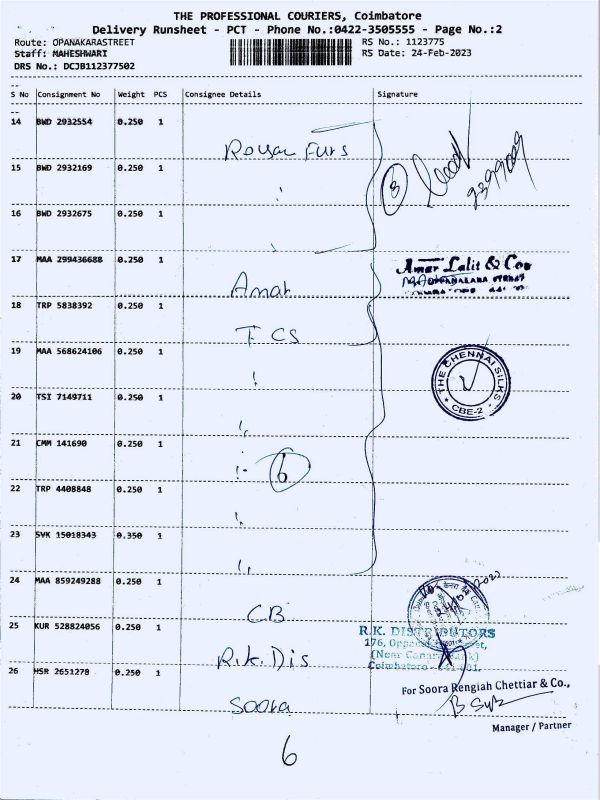 THE PROFESSIONAL COURIERS, Coimbatore
Delivery Runsheet - PCT - Phone No.:0422-3505555 - Page No.:2
Route: OPANAKARASTREET
RS No.: 1123775
Staff: MAHESHWARI
RS Date: 24-Feb-2023
DRS No.: DCJB112377502
S No Consignment No Weight PCS Consignee Details Signature
14 BWD 2932554 0.250 1
15 BWD 2932169 0.250 1
3
16 BWD 2932675 0.250 1
17 MAA 299436688 0.250 1
Amar Lalit & Co
Amar
18 TRP 5838392 0.250 1
TCS
19 MAA 568624106 0.250 1
THE CHENNAI SILKS
CBE-2
20 TSI 7149711 0.250 1
21 CMM 141690 0.250 1
6
22 TRP 4408848 0.250 1
23 SVK 15018343 0.350 1
24 MAA 859249288 0.250 1
CB
25 KUR 528824056 0.250 1
R.K. DISTRIBUTORS
176,
(Near Canara Bank)
Coimbatore
R.K. Dis
26 HSR 2651278 0.250 1
For Soora Rengiah Chettiar & Co.,
Soora
Manager / Partner
6